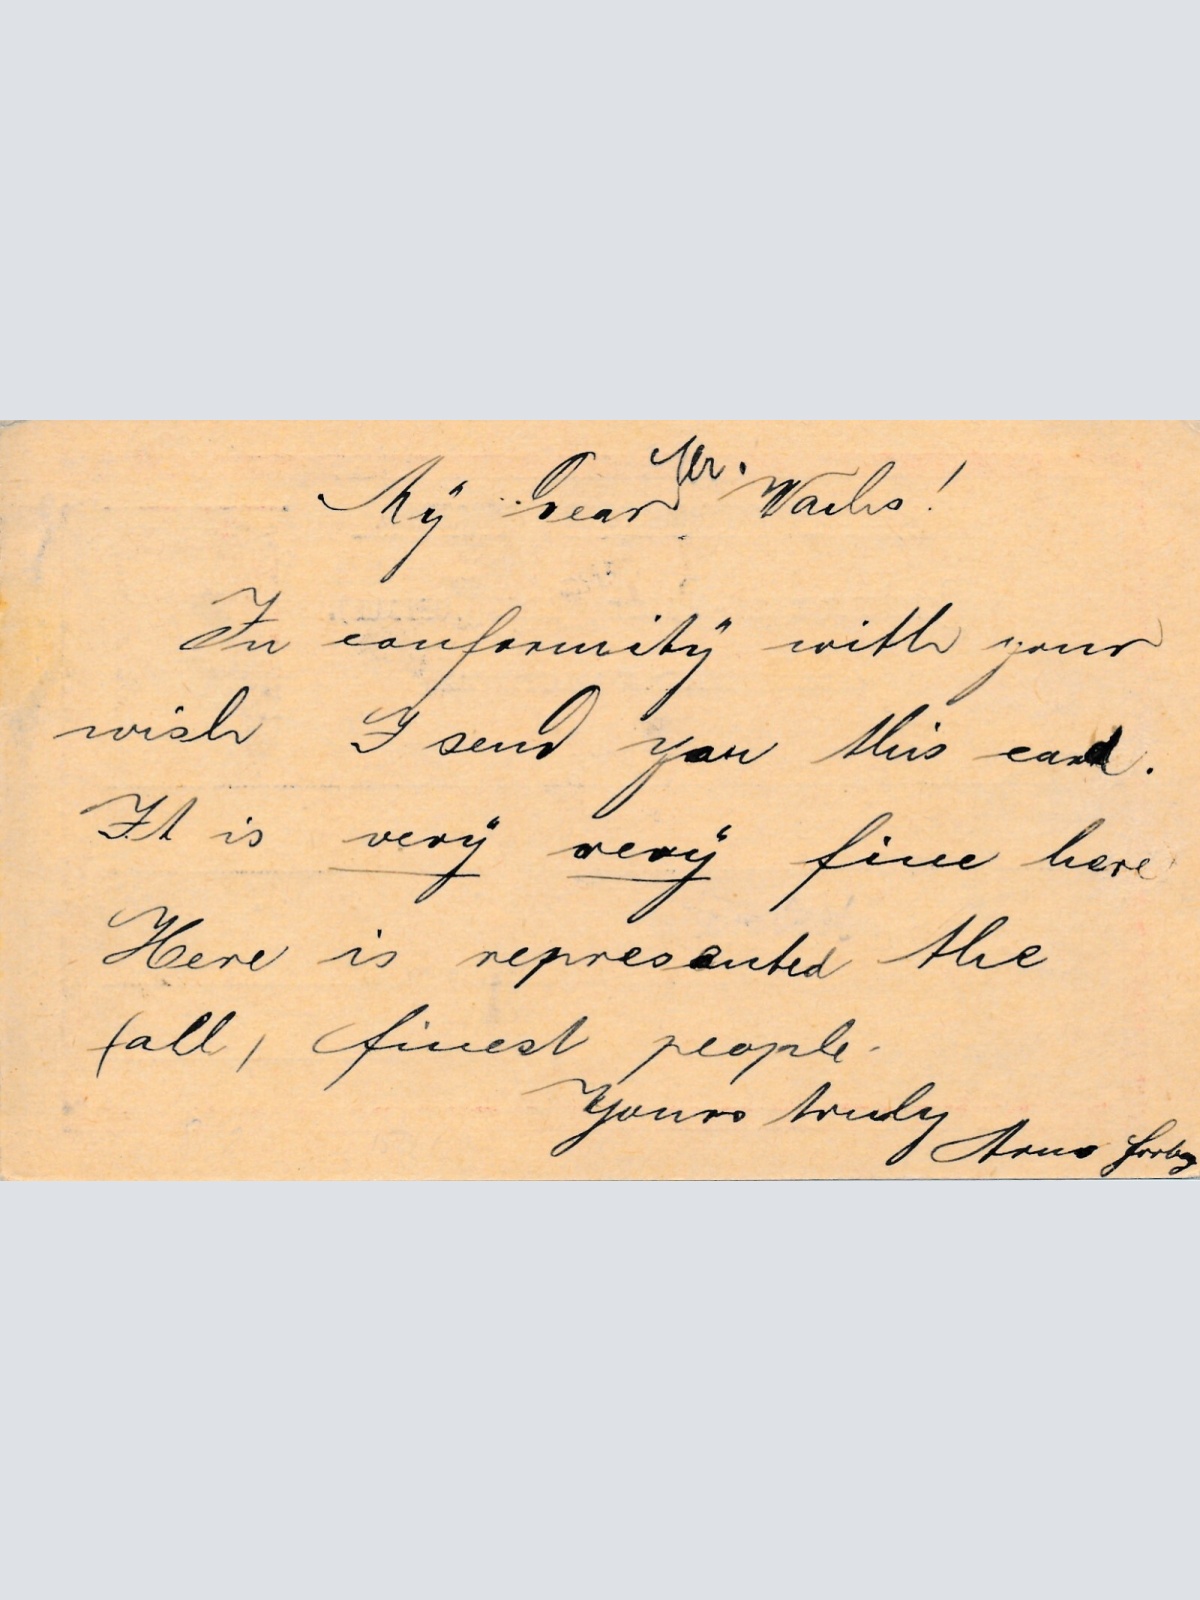 Mÿ dear Mr. Wachs!
In conformitÿ with your
wish I send you this card.
It is verÿ verÿ fine here
Here is represented the
(all) finest people.
Yours truly
Arno